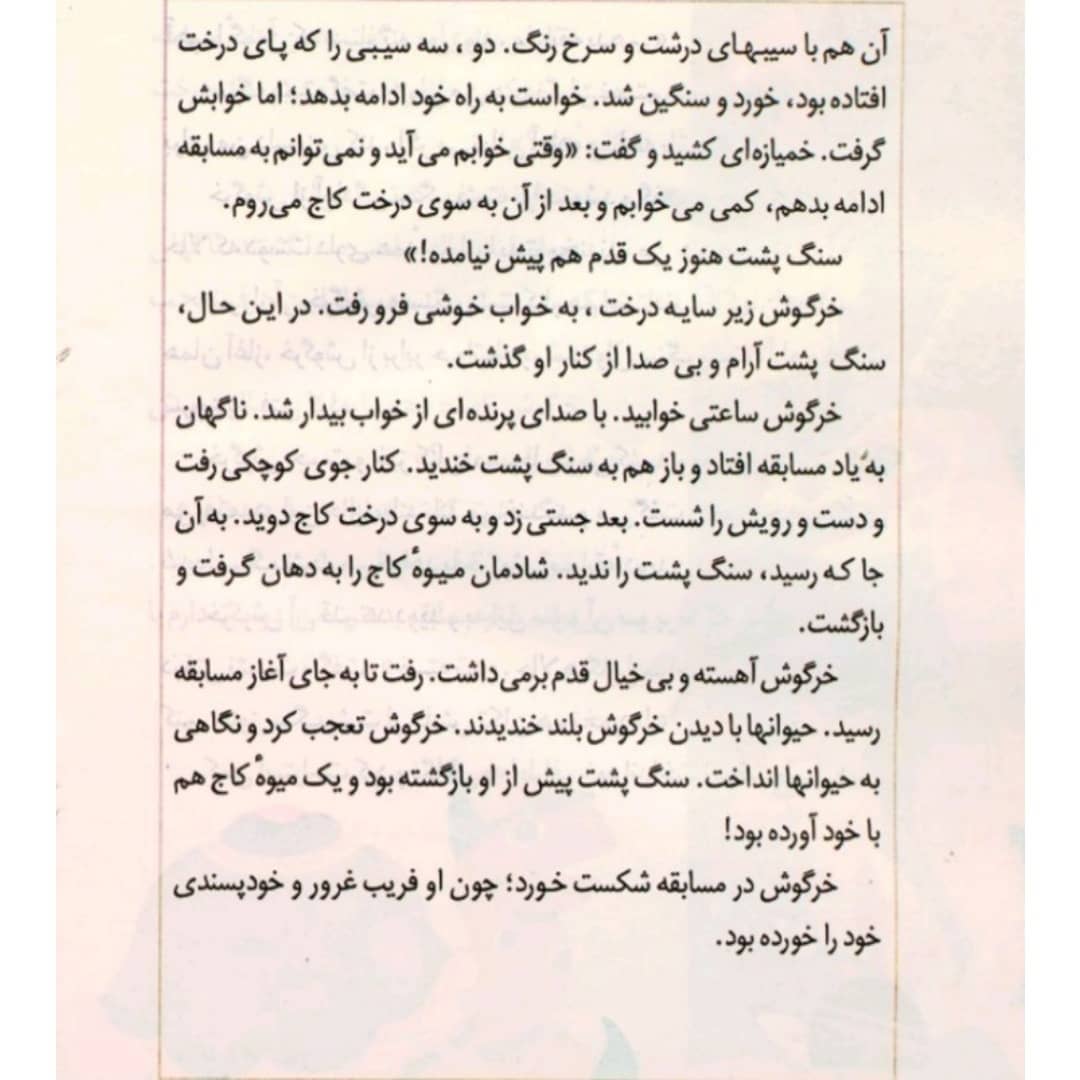 آن هم با سیبهای درشت و سرخ رنگ. دو ، سه سیبی را که پای درخت
افتاده بود، خورد و سنگین شد. خواست به راه خود ادامه بدهد؛ اما خوابش
گرفت. خمیازه‌ای کشید و گفت: «وقتی خوابم می آید و نمی‌توانم به مسابقه
ادامه بدهم، کمی می‌خوابم و بعد از آن به سوی درخت کاج می‌روم.
سنگ پشت هنوز یک قدم هم پیش نیامده!»
خرگوش زیر سایه درخت ، به خواب خوشی فرو رفت. در این حال،
سنگ پشت آرام و بی صدا از کنار او گذشت.
خرگوش ساعتی خوابید. با صدای پرنده ای از خواب بیدار شد. ناگهان
به یاد مسابقه افتاد و باز هم به سنگ پشت خندید. کنار جوی کوچکی رفت
و دست و رویش را شست. بعد جستی زد و به سوی درخت کاج دوید. به آن
جا که رسید، سنگ پشت را ندید. شادمان میوهٔ کاج را به دهان گرفت و
بازگشت.
خرگوش آهسته و بی‌خیال قدم برمی‌داشت. رفت تا به جای آغاز مسابقه
رسید. حیوانها با دیدن خرگوش بلند خندیدند. خرگوش تعجب کرد و نگاهی
به حیوانها انداخت. سنگ پشت پیش از او بازگشته بود و یک میوهٔ کاج هم
با خود آورده بود!
خرگوش در مسابقه شکست خورد؛ چون او فریب غرور و خودپسندی
خود را خورده بود.